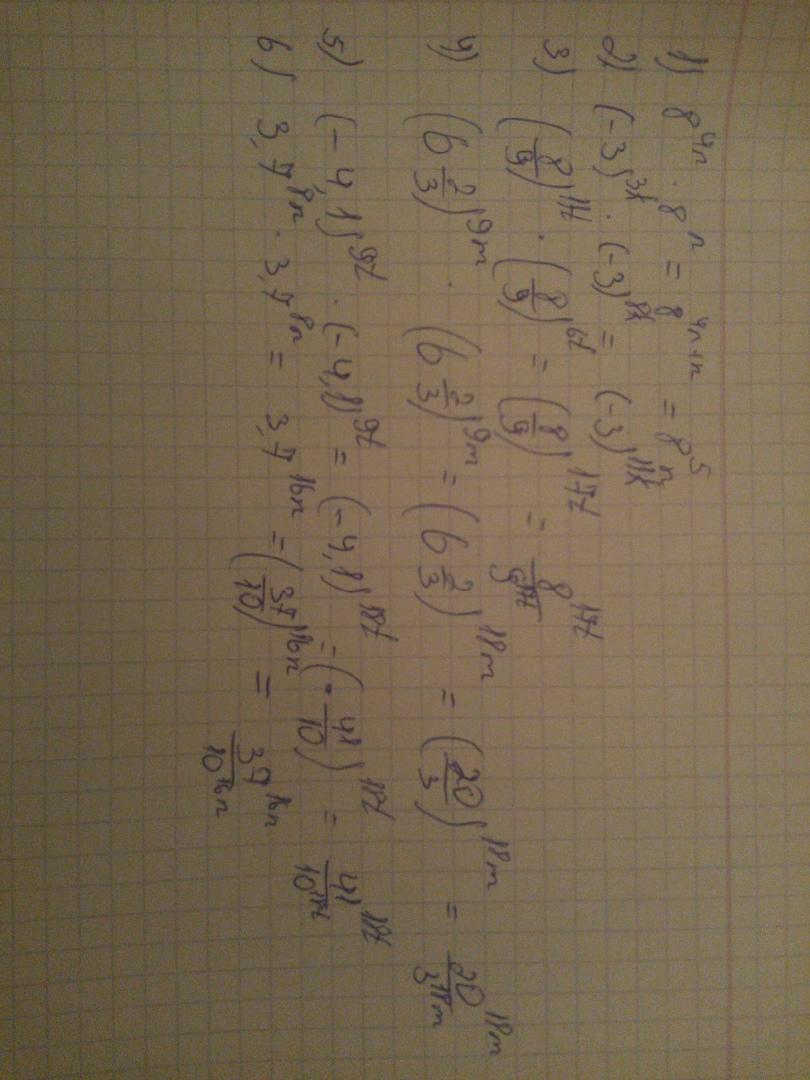 1) 8^{4n} · 8^{n} = 8^{4n+n} = 8^{5n}
2) (-3)^{3k} · (-3)^{8k} = (-3)^{11k}
3) (8/9)^{11t} · (8/9)^{6t} = (8/9)^{17t} = 8^{17t}/9^{17t}
4) (6 2/3)^{9m} · (6 2/3)^{9m} = (6 2/3)^{18m} = (20/3)^{18m} = 20^{18m}/3^{18m}
5) (-4,1)^{9t} · (-4,1)^{9t} = (-4,1)^{18t} = (-41/10)^{18t} = 41^{18t}/10^{18t}
6) 3,7^{8n} · 3,7^{8n} = 3,7^{16n} = (37/10)^{16n} = 37^{16n}/10^{16n}